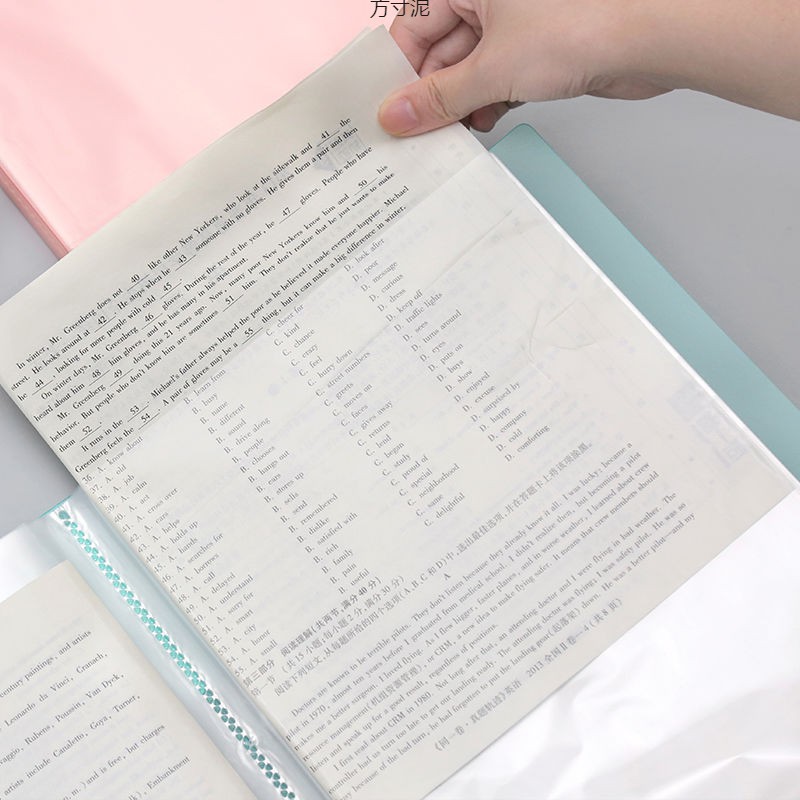 方寸泥
In winter, Mr. Greenberg does not 40 like other New Yorkers, who look at the sidewalk and 41 the
street. He looks around at 42 . He stops when he 43 someone with no gloves. He gives them a pair and then
he 44 , looking for more people with cold 45 .
On winter days, Mr. Greenberg 46 gloves. During the rest of the year, he 47 gloves. People who have
heard about him 48 him gloves, and he has many in his apartment.
Mr. Greenberg 49 doing this 21 years ago. Now, many poor New Yorkers know him and 50 his
behavior. But people who don't know him are sometimes 51 him. They don't realize that he just wants to make
them 52 .
It runs in the 53 . Michael's father always helped the poor as he believed it made everyone happier. Michael
Greenberg feels the 54 . A pair of gloves may be a 55 thing, but it can make a big difference in winter.
36. A. know about B. learn from C. cheer for D. look after
37. A. old B. busy C. kind D. poor
38. A. job B. name C. chance D. message
39. A. calm B. different C. crazy D. curious
40. A. act B. sound C. feel D. dress
41. A. cross over B. drive along C. hurry down D. keep off
42. A. cars B. people C. street numbers D. traffic lights
43. A. helps B. chooses C. greets D. sees
44. A. holds up B. hangs out C. moves on D. turns around
45. A. hands B. ears C. faces D. eyes
46. A. searches for B. stores up C. gives away D. puts on
47. A. borrows B. sells C. returns D. buys
48. A. call B. send C. lend D. show
49. A. delayed B. remembered C. began D. enjoyed
50. A. understand B. dislike C. study D. excuse
51. A. sorry for B. satisfied with C. proud of D. surprised by
52. A. smart B. rich C. special D. happy
53. A. city B. family C. neighborhood D. company
54. A. honor B. pain C. same D. cold
55. A. small B. useful C. delightful D. comforting
第三部分 阅读理解(共两节,满分40分)
第一节 (共15小题;每小题2分,满分30分)
阅读下列短文,从每题所给的四个选项(A、B、C和D)中,选出最佳选项,并在答题卡上将该项涂黑。
A
Doctors are known to be terrible pilots. They don't listen because they already know it all. I was lucky: became a
pilot in 1970, almost ten years before I graduated from medical school. I didn't realize then, but becoming a pilot
makes me a better surgeon. I loved flying. As I flew bigger, faster planes, and in worse weather, I learned about crew
resource management(机组资源管理), or CRM, a new idea to make flying safer. It means that crew members should
listen and speak up for a good result, regardless of positions.
I first read about CRM in 1980. Not long after that, an attending doctor and I were flying in bad weather. The
controller had us turn too late to get our landing ready. The attending doctor was flying; I was safety pilot. He was so
busy because of the bad turn, he had forgotten to put the landing gear(起落架) down. He was a better pilot—and my
《何一卷·真题轨迹》英语 2013 全国Ⅱ卷—4(共8页)
century paintings, and artists
Leonardo da Vinci, Cranach,
vaggio, Rubens, Poussin, Van Dyck,
artists include Canaletto, Goya, Turner,
n, m.) and is free, but charges
k), Embankment